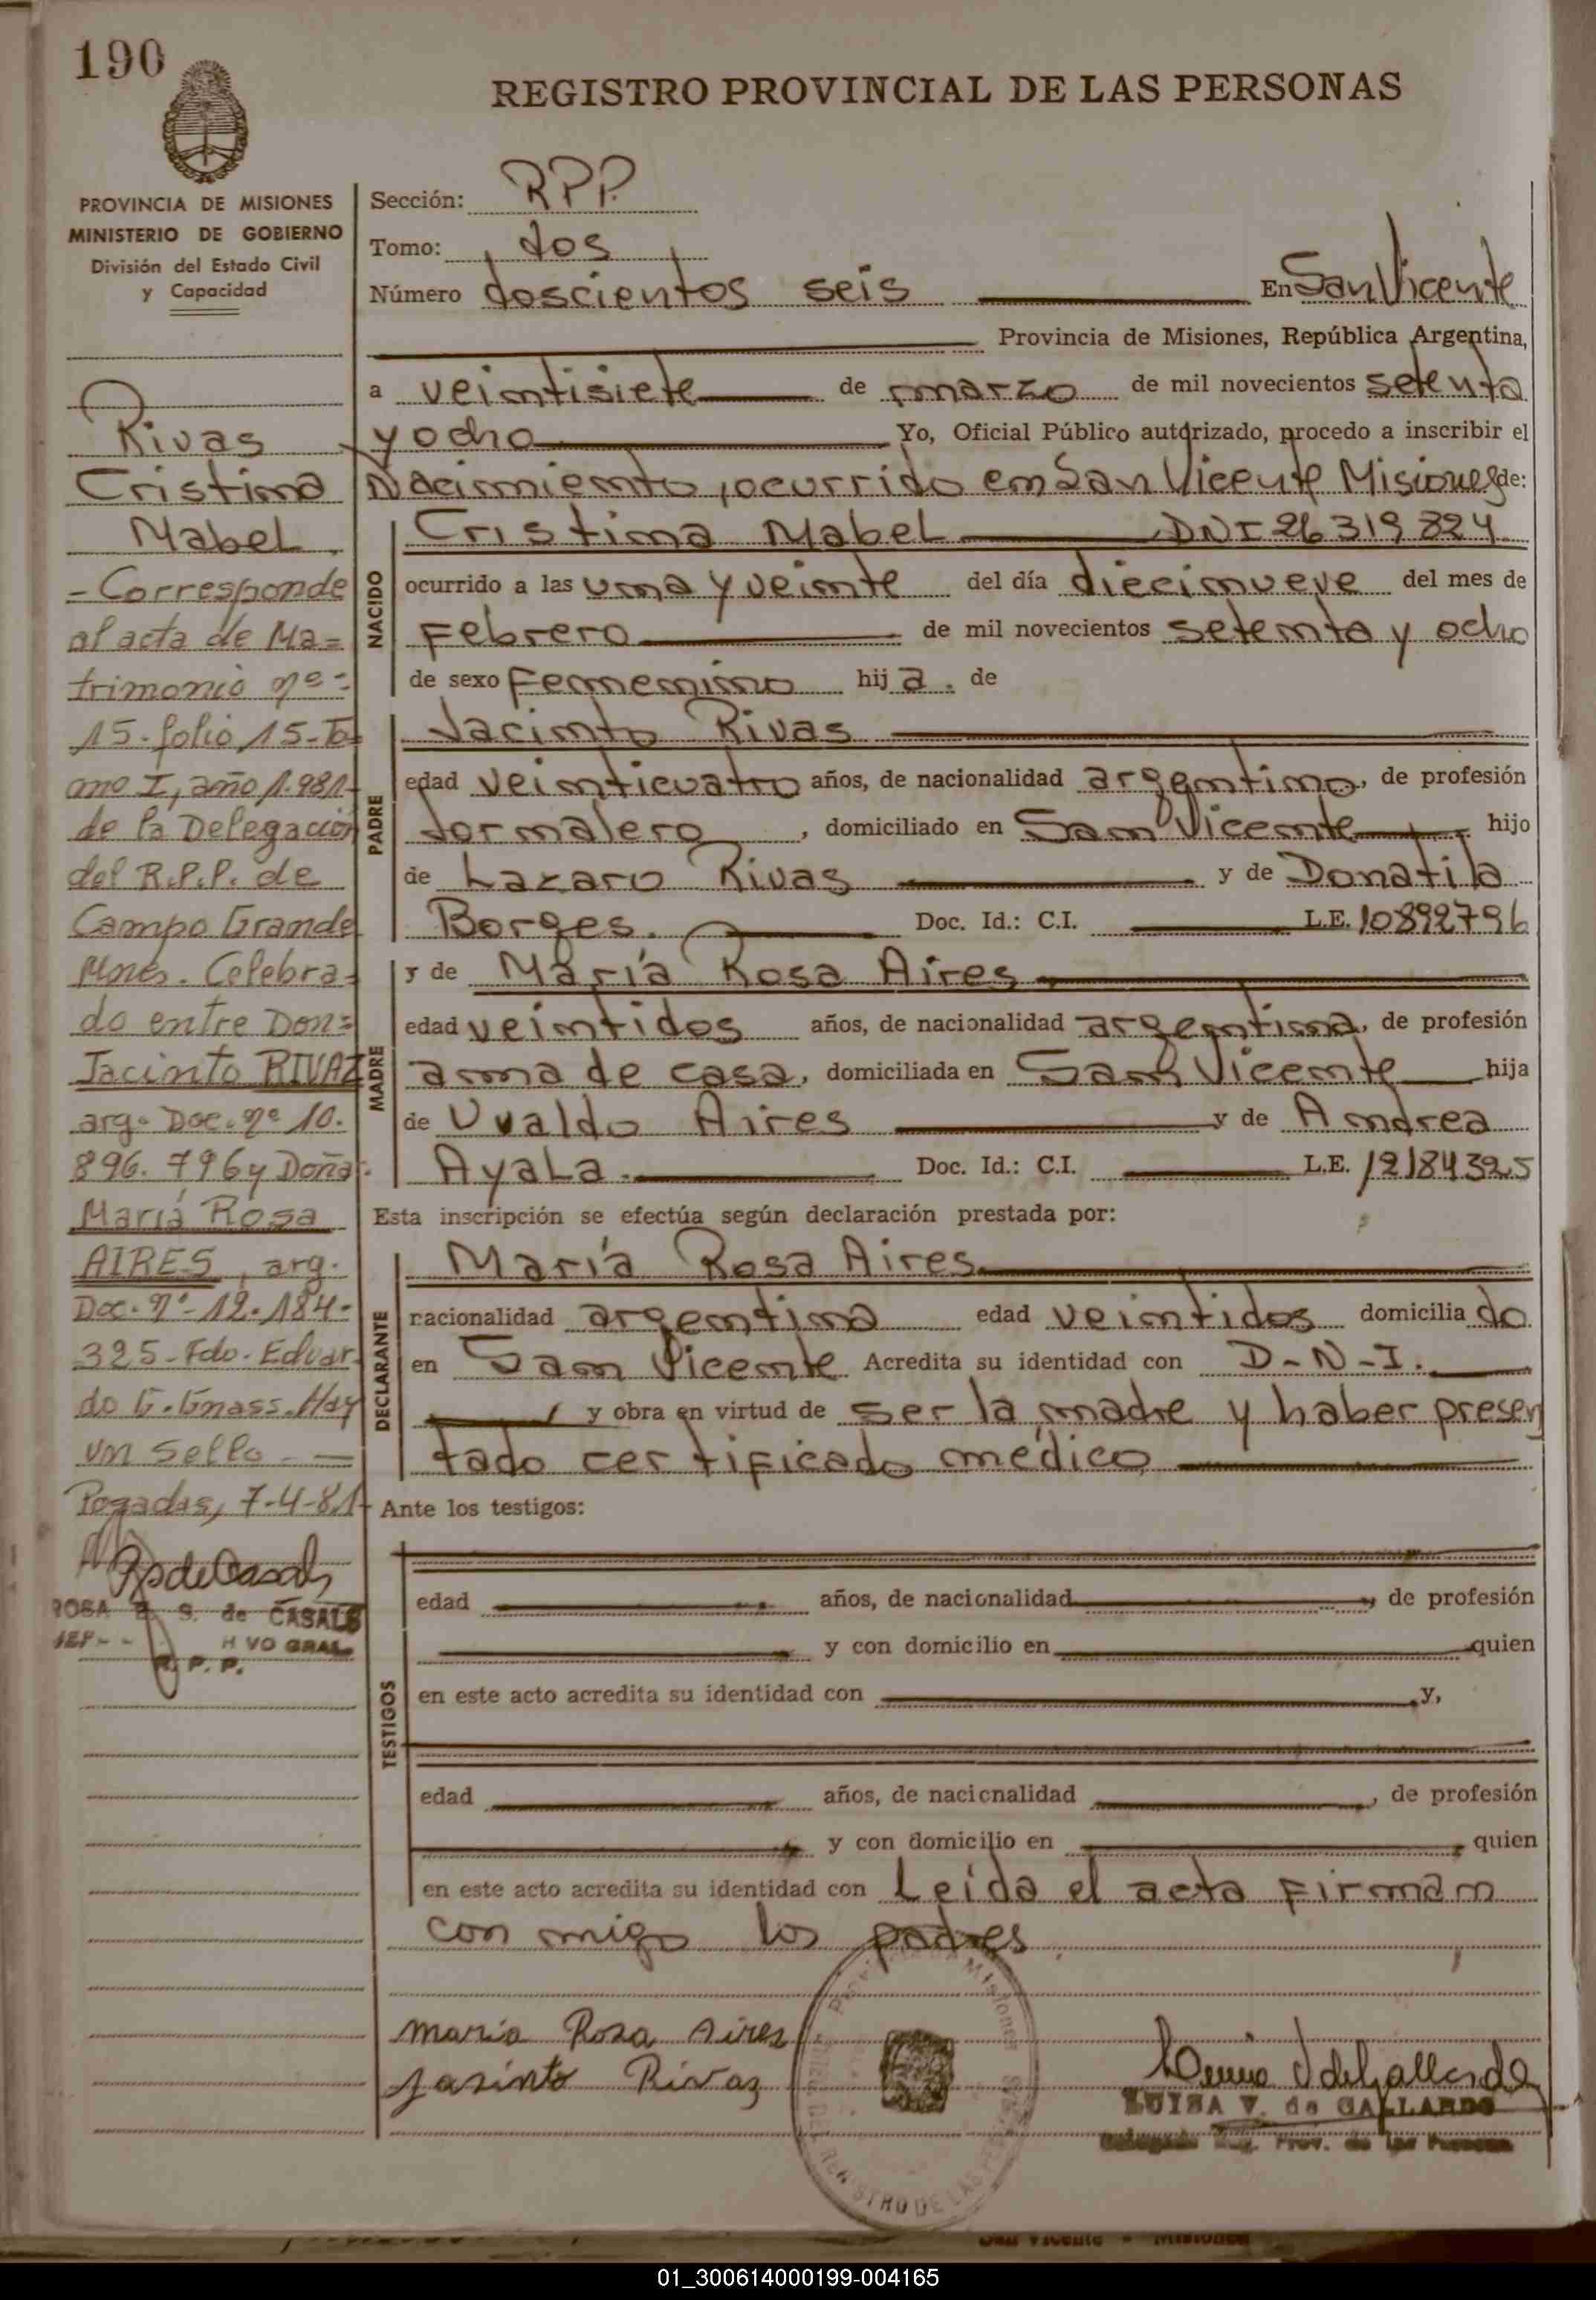 190
REGISTRO PROVINCIAL DE LAS PERSONAS
PROVINCIA DE MISIONES
MINISTERIO DE GOBIERNO
División del Estado Civil
y Capacidad
Rivas
Cristina
Mabel
- Corresponde
al acta de Ma=
trimonio nº-
15-folio 15-To
mo I, año 1.981-
de la Delegación
del R.P.P. de
Campo Grande
Mnes. Celebra-
do entre Don=
Jacinto RIVAZ
arg. Doc. nº 10.
896.796 y Doña
María Rosa
AIRES, arg.
Doc. nº-12.184-
325-Fdo. Eduar
do G. Gnass. Hay
un sello. —
Posadas, 7-4-81
ROSA S. de CASALS
R. P. P.
Sección: RPP.
Tomo: dos
Número doscientos seis En San Vicente
Provincia de Misiones, República Argentina,
a veintisiete de marzo de mil novecientos setenta
y ocho Yo, Oficial Público autorizado, procedo a inscribir el
Nacimiento, ocurrido en San Vicente Misiones de:
NACIDO
Cristina Mabel DNI 26319824
ocurrido a las una y veinte del día diecinueve del mes de
Febrero de mil novecientos setenta y ocho
de sexo Femenino hija. de
PADRE
Jacinto Rivas
edad veinticuatro años, de nacionalidad argentino, de profesión
Jornalero, domiciliado en San Vicente, hijo
de Lazaro Rivas y de Donatila
Borges. Doc. Id.: C.I. L.E. 10892796
MADRE
y de María Rosa Aires
edad veintidos años, de nacionalidad argentina, de profesión
ama de casa, domiciliada en San Vicente hija
de Uvaldo Aires y de Andrea
Ayala. Doc. Id.: C.I. L.E. 12184325
Esta inscripción se efectúa según declaración prestada por:
DECLARANTE
María Rosa Aires
nacionalidad argentina edad veintidos domiciliado
en San Vicente Acredita su identidad con D-N-I.
y obra en virtud de ser la madre y haber presen
tado certificado médico
Ante los testigos:
TESTIGOS
edad años, de nacionalidad, de profesión
y con domicilio en quien
en este acto acredita su identidad con y,
edad años, de nacionalidad, de profesión
y con domicilio en quien
en este acto acredita su identidad con Leida el acta firman
con migo los padres
maria Rosa Aires
Jasinto Rivas
LUISA V. de GALLARDO
Delegada Reg. Prov. de las Personas
San Vicente - Misiones
01_300614000199-004165